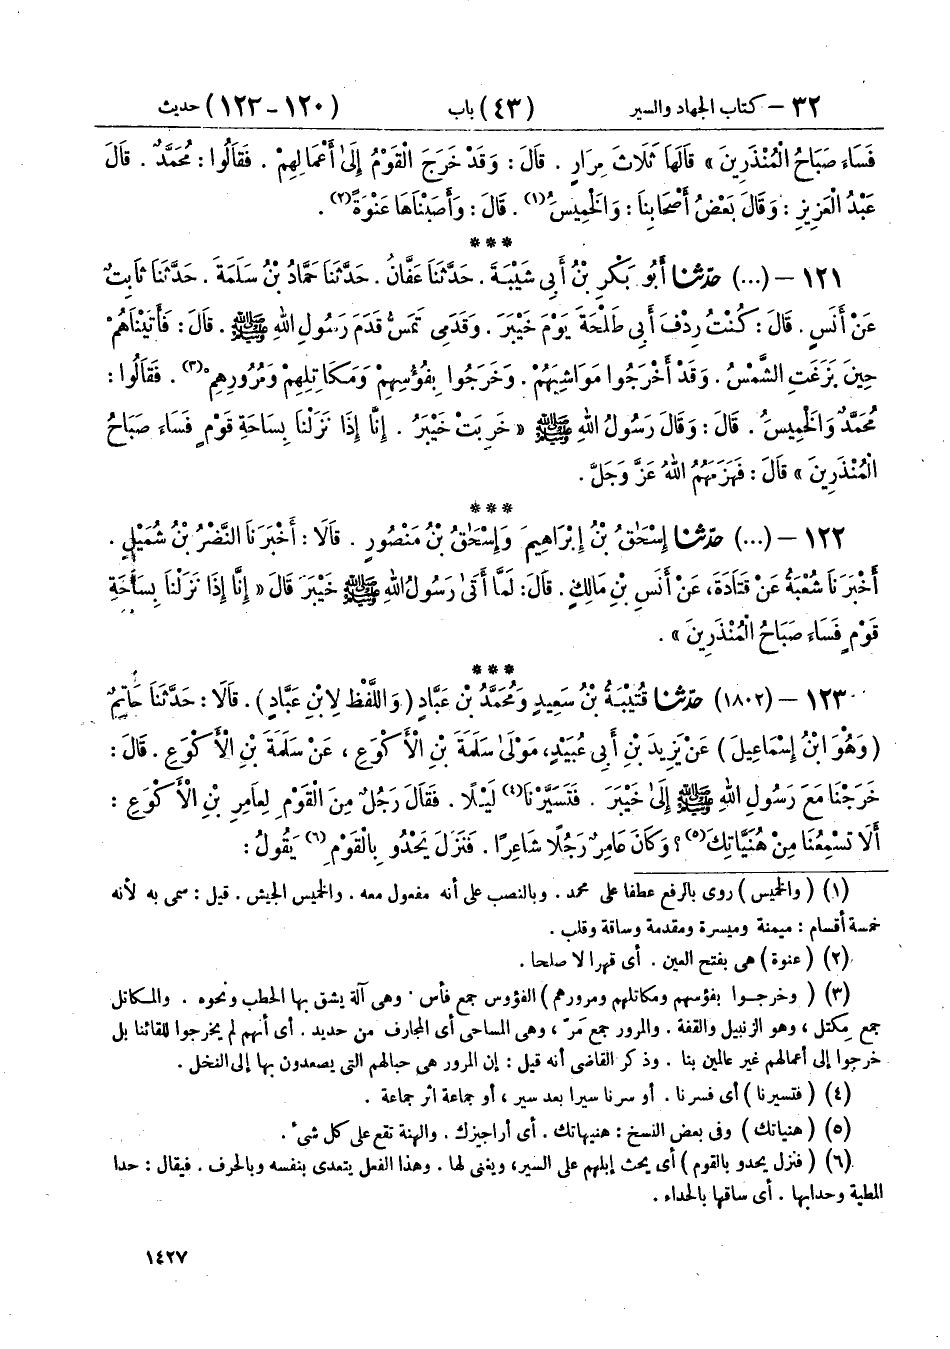 ٣٢ – كتاب الجهاد والسير (٤٣) باب (١٢٠-١٢٣) حديث
فَسَاءَ صَبَاحُ الْمُنْذَرِينَ » قَالَهَا ثَلَاثَ مِرَارٍ . قَالَ : وَقَدْ خَرَجَ الْقَوْمُ إِلَىٰ أَعْمَالِهِمْ . فَقَالُوا : مُحَمَّدٌ . قَالَ
عَبْدُ الْعَزِيزِ : وَقَالَ بَعْضُ أَصْحَابِنَا : وَالْخَمِيسُ(١) . قَالَ : وَأَصَبْنَاهَا عَنْوَةً(٢) .
***
١٢١ – (...) حدّثنا أَبُو بَكْرِ بْنُ أَبِي شَيْبَةَ . حَدَّثَنَا عَفَّانُ . حَدَّثَنَا حَمَّادُ بْنُ سَلَمَةَ . حَدَّثَنَا ثَابِتٌ
عَنْ أَنَسٍ . قَالَ : كُنْتُ رِدْفَ أَبِي طَلْحَةَ يَوْمَ خَيْبَرَ . وَقَدَمِي تَمَسُّ قَدَمَ رَسُولِ اللهِ ﷺ . قَالَ : فَأَتَيْنَاهُمْ
حِينَ بَزَغَتِ الشَّمْسُ . وَقَدْ أَخْرَجُوا مَوَاشِيَهُمْ . وَخَرَجُوا بِفُؤُسِهِمْ وَمَكَاتِلِهِمْ وَمُرُورِهِمْ(٣) . فَقَالُوا :
مُحَمَّدٌ وَالْخَمِيسُ . قَالَ : وَقَالَ رَسُولُ اللهِ ﷺ « خَرِبَتْ خَيْبَرُ . إِنَّا إِذَا نَزَلْنَا بِسَاحَةِ قَوْمٍ فَسَاءَ صَبَاحُ
الْمُنْذَرِينَ » قَالَ : فَهَزَمَهُمُ اللهُ عَزَّ وَجَلَّ .
***
١٢٢ – (...) حدّثنا إِسْحَٰقُ بْنُ إِبْرَاهِيمَ وَإِسْحَٰقُ بْنُ مَنْصُورٍ . قَالَا : أَخْبَرَنَا النَّضْرُ بْنُ شُمَيْلٍ .
أَخْبَرَنَا شُعْبَةُ عَنْ قَتَادَةَ، عَنْ أَنَسِ بْنِ مَالِكٍ . قَالَ : لَمَّا أَتَىٰ رَسُولُ اللهِ ﷺ خَيْبَرَ قَالَ « إِنَّا إِذَا نَزَلْنَا بِسَاحَةِ
قَوْمٍ فَسَاءَ صَبَاحُ الْمُنْذَرِينَ » .
***
١٢٣ – (١٨٠٢) حدّثنا قُتَيْبَةُ بْنُ سَعِيدٍ وَمُحَمَّدُ بْنُ عَبَّادٍ ( وَاللَّفْظُ لِابْنِ عَبَّادٍ ) . قَالَا : حَدَّثَنَا حَاتِمٌ
( وَهُوَ ابْنُ إِسْمَاعِيلَ ) عَنْ يَزِيدَ بْنِ أَبِي عُبَيْدٍ، مَوْلَىٰ سَلَمَةَ بْنِ الْأَكْوَعِ ، عَنْ سَلَمَةَ بْنِ الْأَكْوَعِ . قَالَ :
خَرَجْنَا مَعَ رَسُولِ اللهِ ﷺ إِلَىٰ خَيْبَرَ . فَتَسَيَّرْنَا(٤) لَيْلًا . فَقَالَ رَجُلٌ مِنَ الْقَوْمِ لِعَامِرِ بْنِ الْأَكْوَعِ :
أَلَا تُسْمِعُنَا مِنْ هُنَيَّاتِكَ(٥) ؟ وَكَانَ عَامِرٌ رَجُلًا شَاعِرًا . فَنَزَلَ يَحْدُو بِالْقَوْمِ(٦) يَقُولُ :
(١) ( والخميس ) روى بالرفع عطفا على محمد . وبالنصب على أنه مفعول معه . والخميس الجيش . قيل : سمى به لأنه
خمسة أقسام : ميمنة وميسرة ومقدمة وساقة وقلب .
(٢) ( عنوة ) هى بفتح العين . أى قهرا لا صلحا .
(٣) ( وخرجوا بفؤسهم ومكاتلهم ومرورهم ) الفؤوس جمع فأس . وهى آلة يشق بها الحطب ونحوه . والمكاتل
جمع مِكتل ، وهو الزنبيل والقفة . والمرور جمع مَرّ ، وهى المساحى أى المجارف من حديد . أى أنهم لم يخرجوا للقائنا بل
خرجوا إلى أعمالهم غير عالمين بنا . وذكر القاضى أنه قيل : إن المرور هى حبالهم التى يصعدون بها إلى النخل .
(٤) ( فتسيرنا ) أى فسرنا . أو سرنا سيرا بعد سير ، أو جماعة اثر جماعة .
(٥) ( هنياتك ) وفى بعض النسخ : هنيهاتك . أى أراجيزك . والهنة تقع على كل شىء .
(٦) ( فنزل يحدو بالقوم ) أى يحث إبلهم على السير، ويغنى لها . وهذا الفعل يتعدى بنفسه وبالحرف . فيقال : حدا
المطية وحدابها . أى ساقها بالحداء .
١٤٢٧